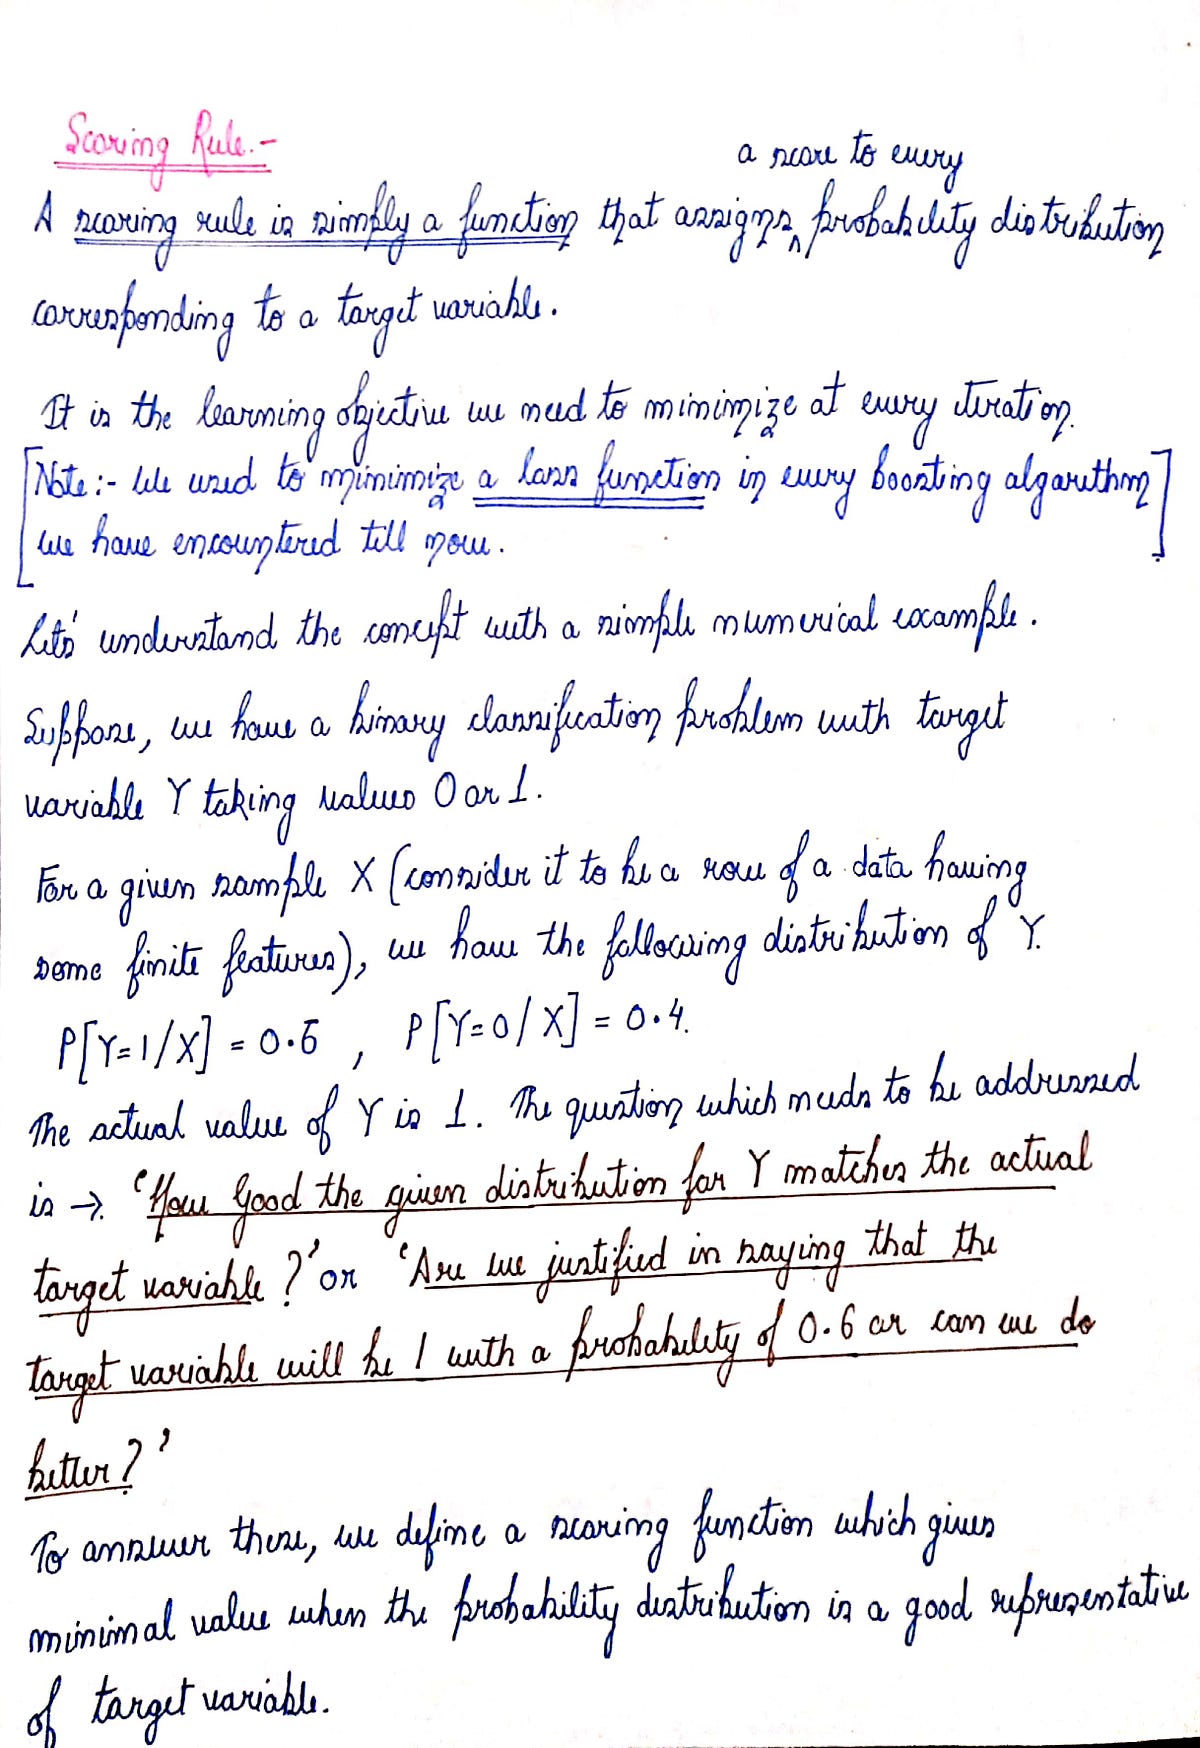 Scoring Rule:-
a score to every
A scoring rule is simply a function that assigns ^ probability distribution
corresponding to a target variable.
It is the learning objective we need to minimize at every iteration.
[Note:- We used to minimize a loss function in every boosting algorithm
we have encountered till now.]
Let's understand the concept with a simple numerical example.
Suppose, we have a binary classification problem with target
variable Y taking values 0 or 1.
For a given sample X (consider it to be a row of a data having
some finite features), we have the following distribution of Y.
P[Y=1/X] = 0.6 , P[Y=0/X] = 0.4.
The actual value of Y is 1. The question which needs to be addressed
is → 'How good the given distribution for Y matches the actual
target variable?' or 'Are we justified in saying that the
target variable will be 1 with a probability of 0.6 or can we do
better?'
To answer these, we define a scoring function which gives
minimal value when the probability distribution is a good representative
of target variable.